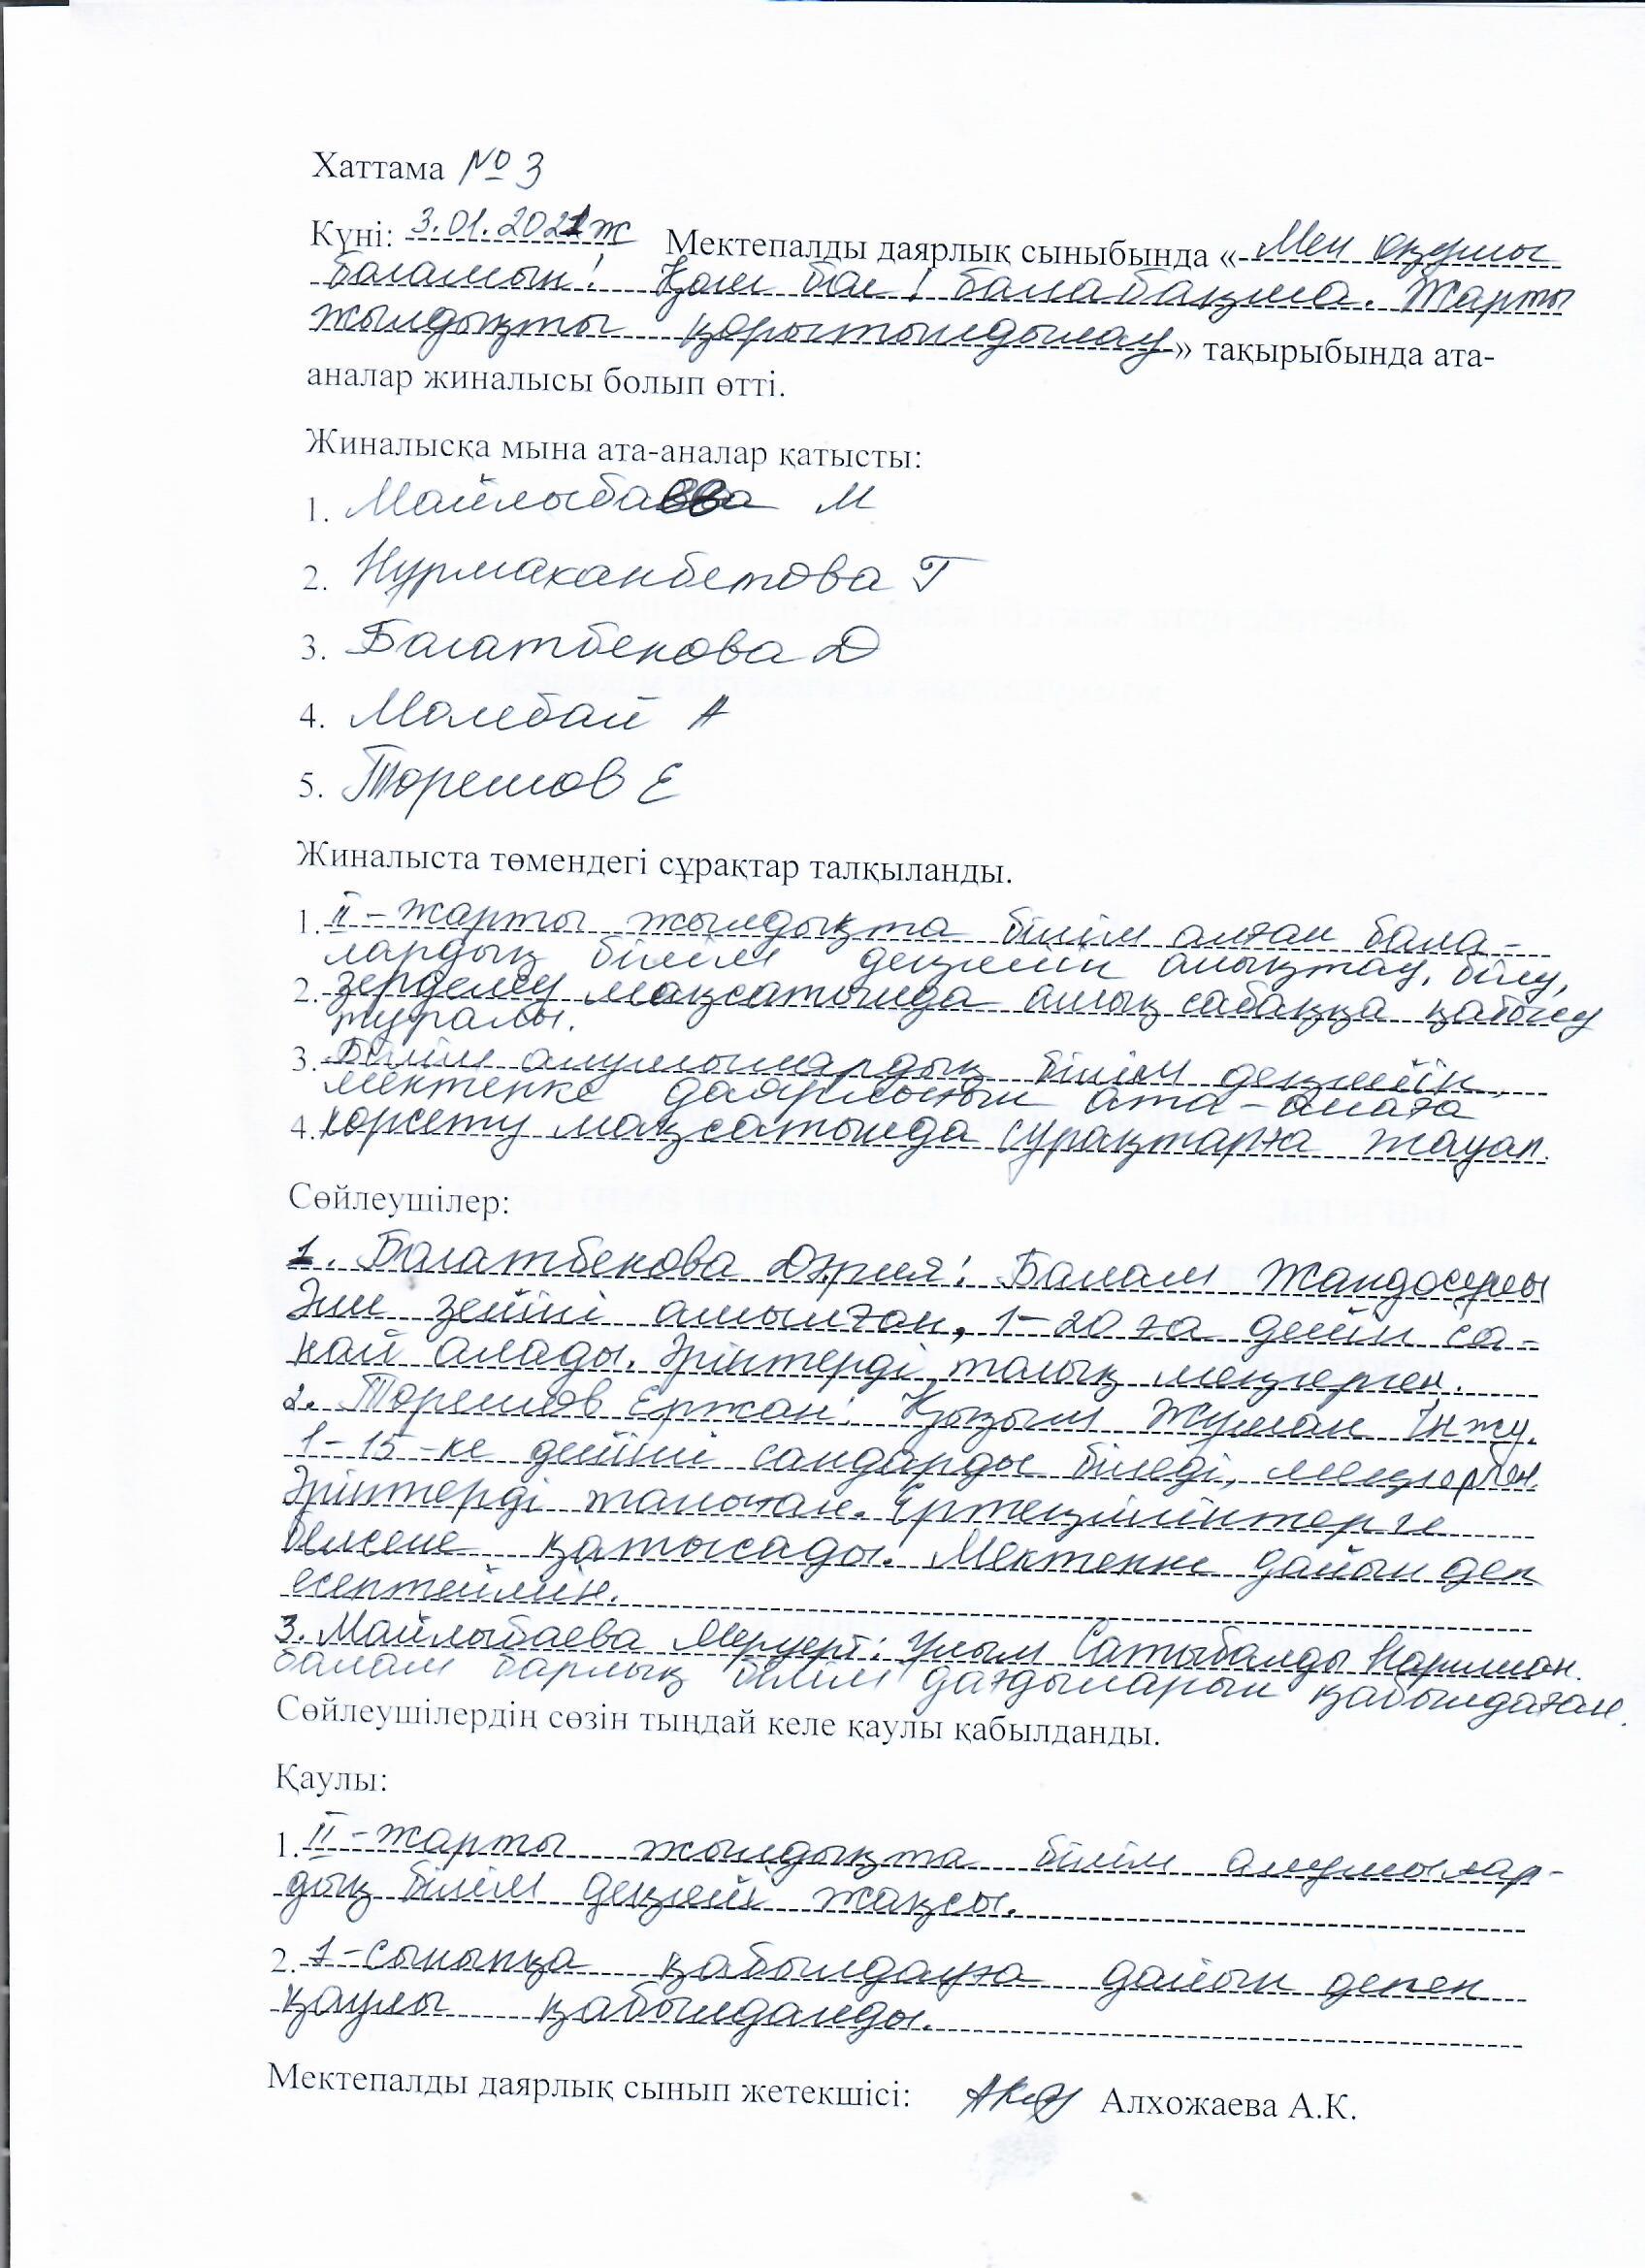 Хаттама № 3
Күні: 3.01.2021ж Мектепалды даярлық сыныбында « Мен оқушы
боламын! Қош бол! балабақша. Жарты
жылдықты қорытындылау » тақырыбында ата-
аналар жиналысы болып өтті.
Жиналысқа мына ата-аналар қатысты:
1. Майлыбаева М
2. Нурмаханбетова Г
3. Багатбекова Д
4. Малебай А
5. Торешов Е
Жиналыста төмендегі сұрақтар талқыланды.
1. II-жарты жылдықта білім алған бала-
лардың білім деңгейін анықтау, білу,
2. зерделеу мақсатында ашық сабаққа қатысу
туралы.
3. Білім алушылардың білім деңгейін,
мектепке даярлығын ата-анаға
4. көрсету мақсатында сұрақтарға жауап.
Сөйлеушілер:
1. Багатбекова Дария: Балам
зейіні ашылған, 1-20 ға дейін са-
най алады. Әріптерді толық меңгерген.
2. Торешов Ержан: Қызым Жуман Інжу.
1-15-ке дейінгі сандарды біледі, меңгерген.
Әріптерді таныған.
белсене қатысады. Мектепке дайын деп
есептеймін.
3. Майлыбаева Меруерт: Ұлым Сатыбалды Нариман.
балам барлық білім дағдыларын қабылдаған.
Сөйлеушілердің сөзін тыңдай келе қаулы қабылданды.
Қаулы:
1. II-жарты жылдықта білім алушылар-
дың білім деңгейі жақсы.
2. 1-сыныпқа қабылдауға дайын деген
қаулы қабылданды.
Мектепалды даярлық сынып жетекшісі: Алхожаева А.К.